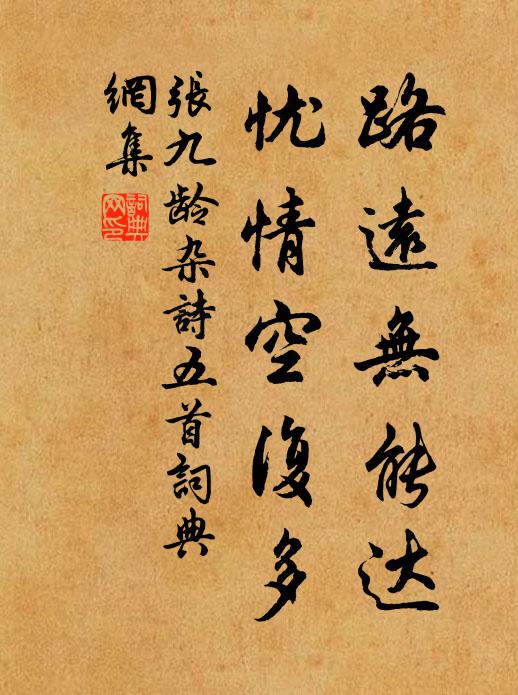 路遠無能达
忧情空復多
張九龄杂詩五首詞典
網集
詞典网印